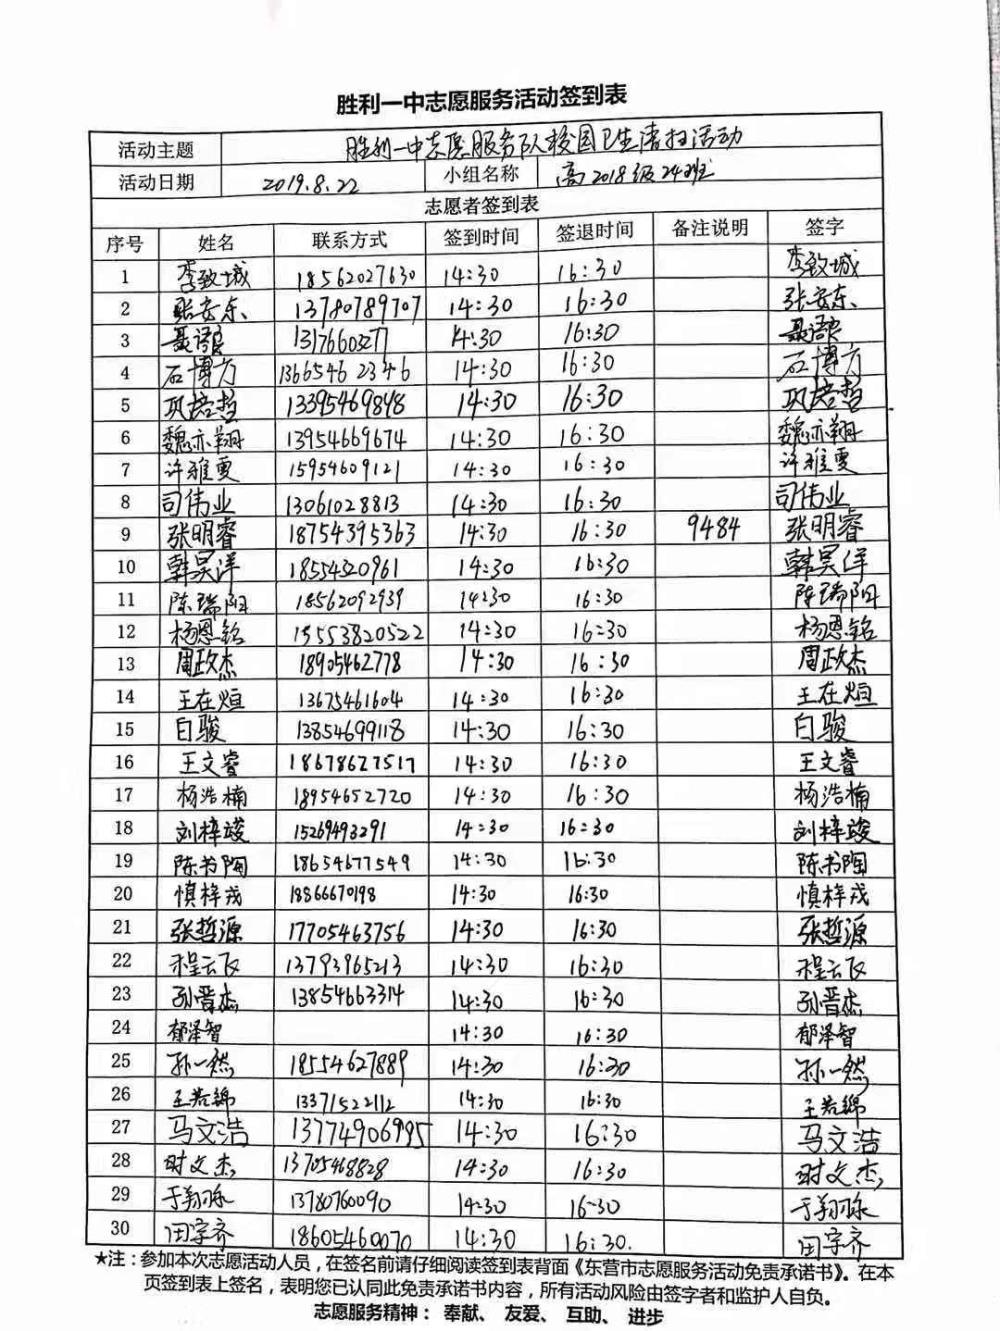 胜利一中志愿服务活动签到表
活动主题 胜利一中志愿服务队校园卫生清扫活动
活动日期 2019.8.22 小组名称 高2018级24班
志愿者签到表
序号 姓名 联系方式 签到时间 签退时间 备注说明 签字
1 李致城 18562027630 14:30 16:30 李致城
2 张安东 13780789707 14:30 16:30 张安东
3 聂语 13176603277 14:30 16:30 聂语
4 石博方 13665462346 14:30 16:30 石博方
5 巩培哲 13395469848 14:30 16:30 巩培哲
6 魏亦翔 13954669674 14:30 16:30 魏亦翔
7 许雅雯 15954609121 14:30 16:30 许雅雯
8 司伟业 13061028813 14:30 16:30 司伟业
9 张明睿 18754395363 14:30 16:30 9484 张明睿
10 韩昊洋 18554320961 14:30 16:30 韩昊洋
11 陈瑞阳 18562092939 14:30 16:30 陈瑞阳
12 杨恩铭 15553820522 14:30 16:30 杨恩铭
13 周政杰 18905462778 14:30 16:30 周政杰
14 王在烜 13675461604 14:30 16:30 王在烜
15 白骏 13854699118 14:30 16:30 白骏
16 王文睿 18678627517 14:30 16:30 王文睿
17 杨浩楠 18954652720 14:30 16:30 杨浩楠
18 刘梓竣 15269493291 14:30 16:30 刘梓竣
19 陈书陶 18654677549 14:30 16:30 陈书陶
20 慎梓戎 18866670198 14:30 16:30 慎梓戎
21 张哲源 17705463756 14:30 16:30 张哲源
22 程云飞 13793965213 14:30 16:30 程云飞
23 孙晋杰 13854663314 14:30 16:30 孙晋杰
24 郁泽智 14:30 16:30 郁泽智
25 孙一然 18554627889 14:30 16:30 孙一然
26 王若锦 13371522112 14:30 16:30 王若锦
27 马文浩 13774906995 14:30 16:30 马文浩
28 时文杰 13705468828 14:30 16:30 时文杰
29 于翔 13780760090 14:30 16:30 于翔
30 田宇齐 18605460070 14:30 16:30. 田宇齐
★注：参加本次志愿活动人员，在签名前请仔细阅读签到表背面《东营市志愿服务活动免责承诺书》。在本
页签到表上签名，表明您已认同此免责承诺书内容，所有活动风险由签字者和监护人自负。
志愿服务精神： 奉献、 友爱、 互助、 进步